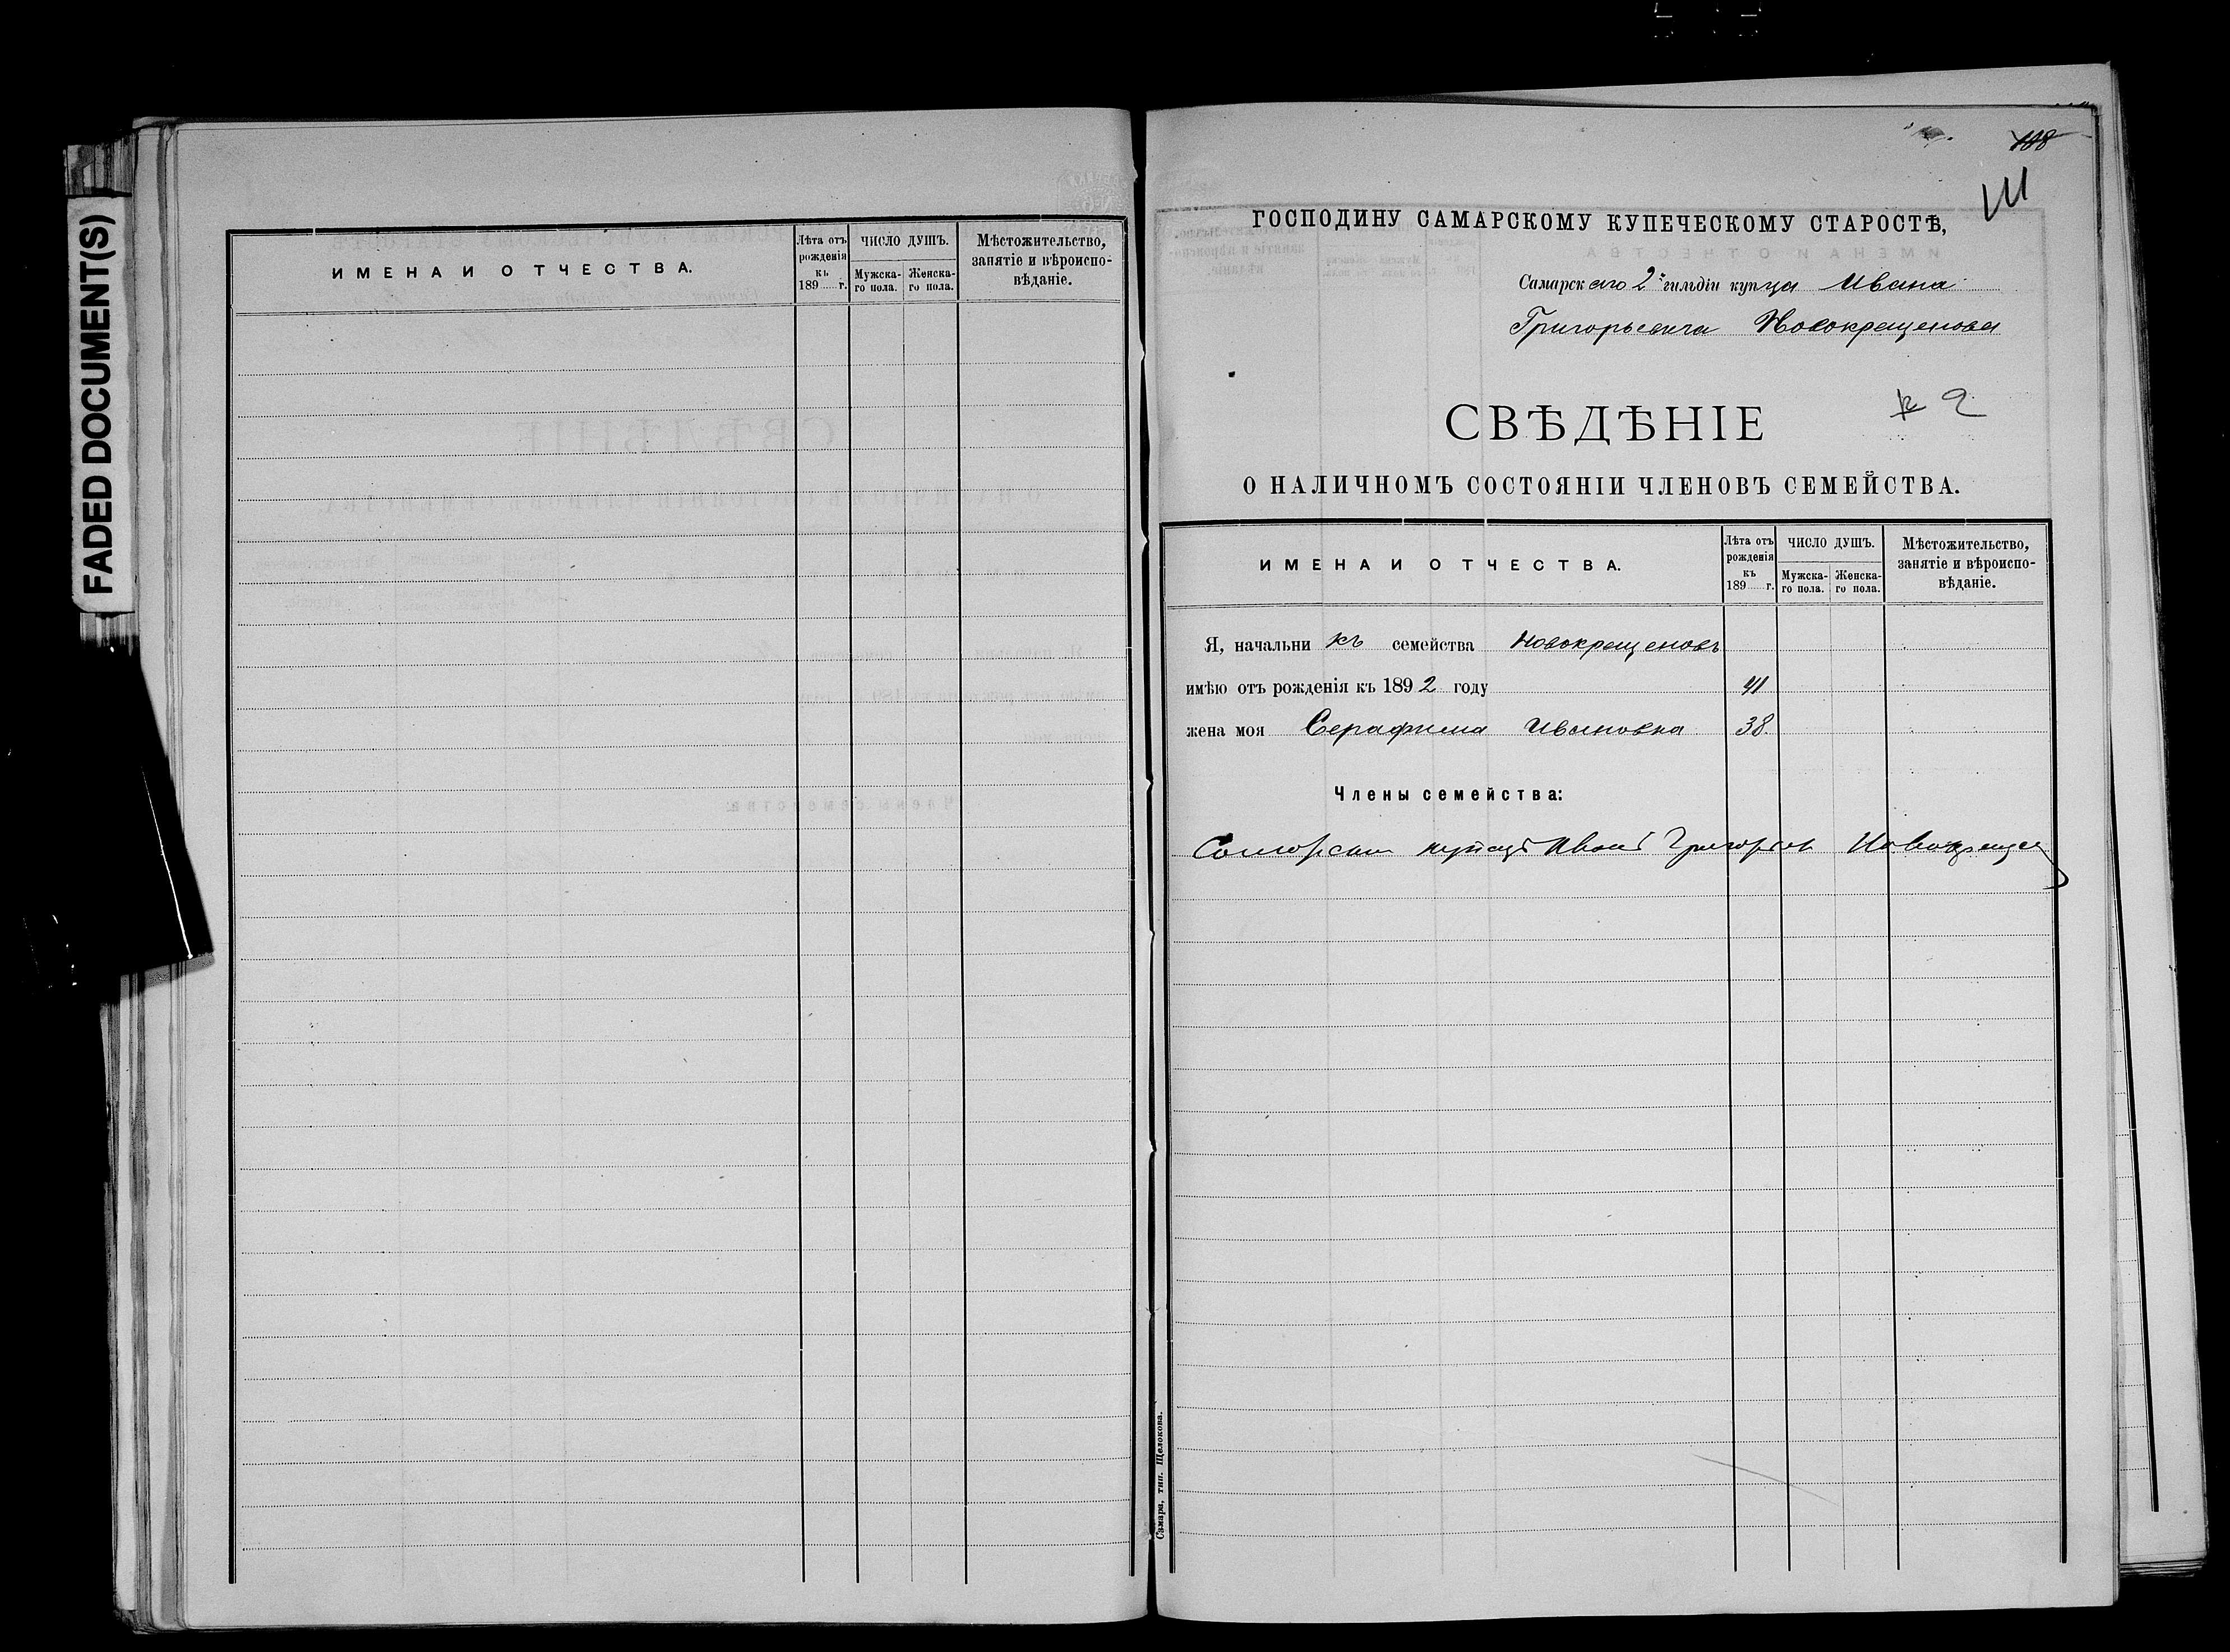 FADED DOCUMENT(S)
ИМЕНА И ОТЧЕСТВА.
Лѣта отъ рожденія къ 189 г.
ЧИСЛО ДУШЪ.
Мужска-го пола.
Женска-го пола.
Мѣстожительство, занятіе и вѣроиспо-вѣданіе.
108
111
ГОСПОДИНУ САМАРСКОМУ КУПЕЧЕСКОМУ СТАРОСТѢ,
Самарскаго 2й гильдіи купца Ивана
Григорьевича Новокрещенова
СВѢДѢНІЕ
2
О НАЛИЧНОМЪ СОСТОЯНІИ ЧЛЕНОВЪ СЕМЕЙСТВА.
ИМЕНА И ОТЧЕСТВА.
Лѣта отъ рожденія къ 189 г.
ЧИСЛО ДУШЪ.
Мужска-го пола.
Женска-го пола.
Мѣстожительство, занятіе и вѣроиспо-вѣданіе.
Я, начальникъ семейства Новокрещеновъ
имѣю отъ рожденія къ 1892 году 41
жена моя Серафима Ивановна 38.
Члены семейства:
купецъ Иванъ Новокрещен
Самара, тип. Щелокова.